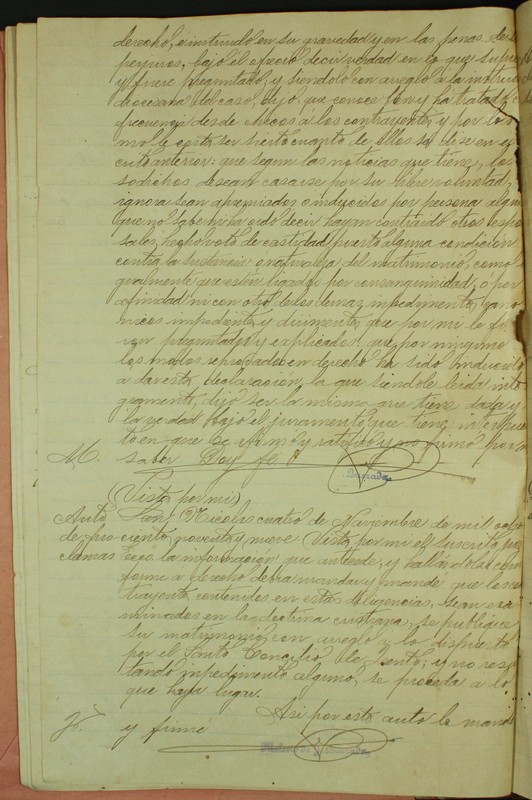 derecho, é instruido en su gravedad y en las penas de
perjuros, bajo él ofreció decir verdad en lo que supiere
y fuere preguntado; y siendolo con arreglo á la
diocesana del caso, dijo: que conoce bien y ha tratado con
frecuencia desde chicos á los contrayentes y por lo
mo le consta ser cierto cuanto de ellos se dice en el
crito anterior: que segun las noticias que tiene, los
sodichos desean casarse por su libre voluntad,
ignora sean apremiados ó inducidos por persona alguna
que no sabe ni ha oido decir hayan contraido otros espon
sales, hecho voto de castidad, puesto alguna condicion
contra la sustancia ó naturaleza del matrimonio, como
igualmente que esten ligados por consanguinidad, ó por
afinidad ni con otro de los demas impedimentos cano
nicos impedientes y dirimentes que por mi le fue
ron preguntados y explicados: que por ninguno
los modos reprobados en derecho ha sido inducido
á dar esta declaracion, la que siendole leida inte
gramente, dijo ser la misma que tiene dada y
la verdad bajo el juramento que tiene interpues
to en que se afirmó y ratificó y no firmó por no
M. saber Doy fe
(Visto por mi)
Auto San Nicolas cuatro de Noviembre de mil ocho
de pro cientos noventa y nueve Vista por mi el suscrito
clamas la informacion que antecede, y hallandola con
forme á derecho debia mandar y mandé que los con
trayentes contenidos en estas diligencias, sean exa
minados en la doctrina cristiana, se publique
su matrimonio con arreglo á lo dispuesto
por el Santo Concilio de Trento; y no resul
tando impedimento alguno, se proceda á lo
que haya lugar.
Asi por este auto lo mandé
y firmé